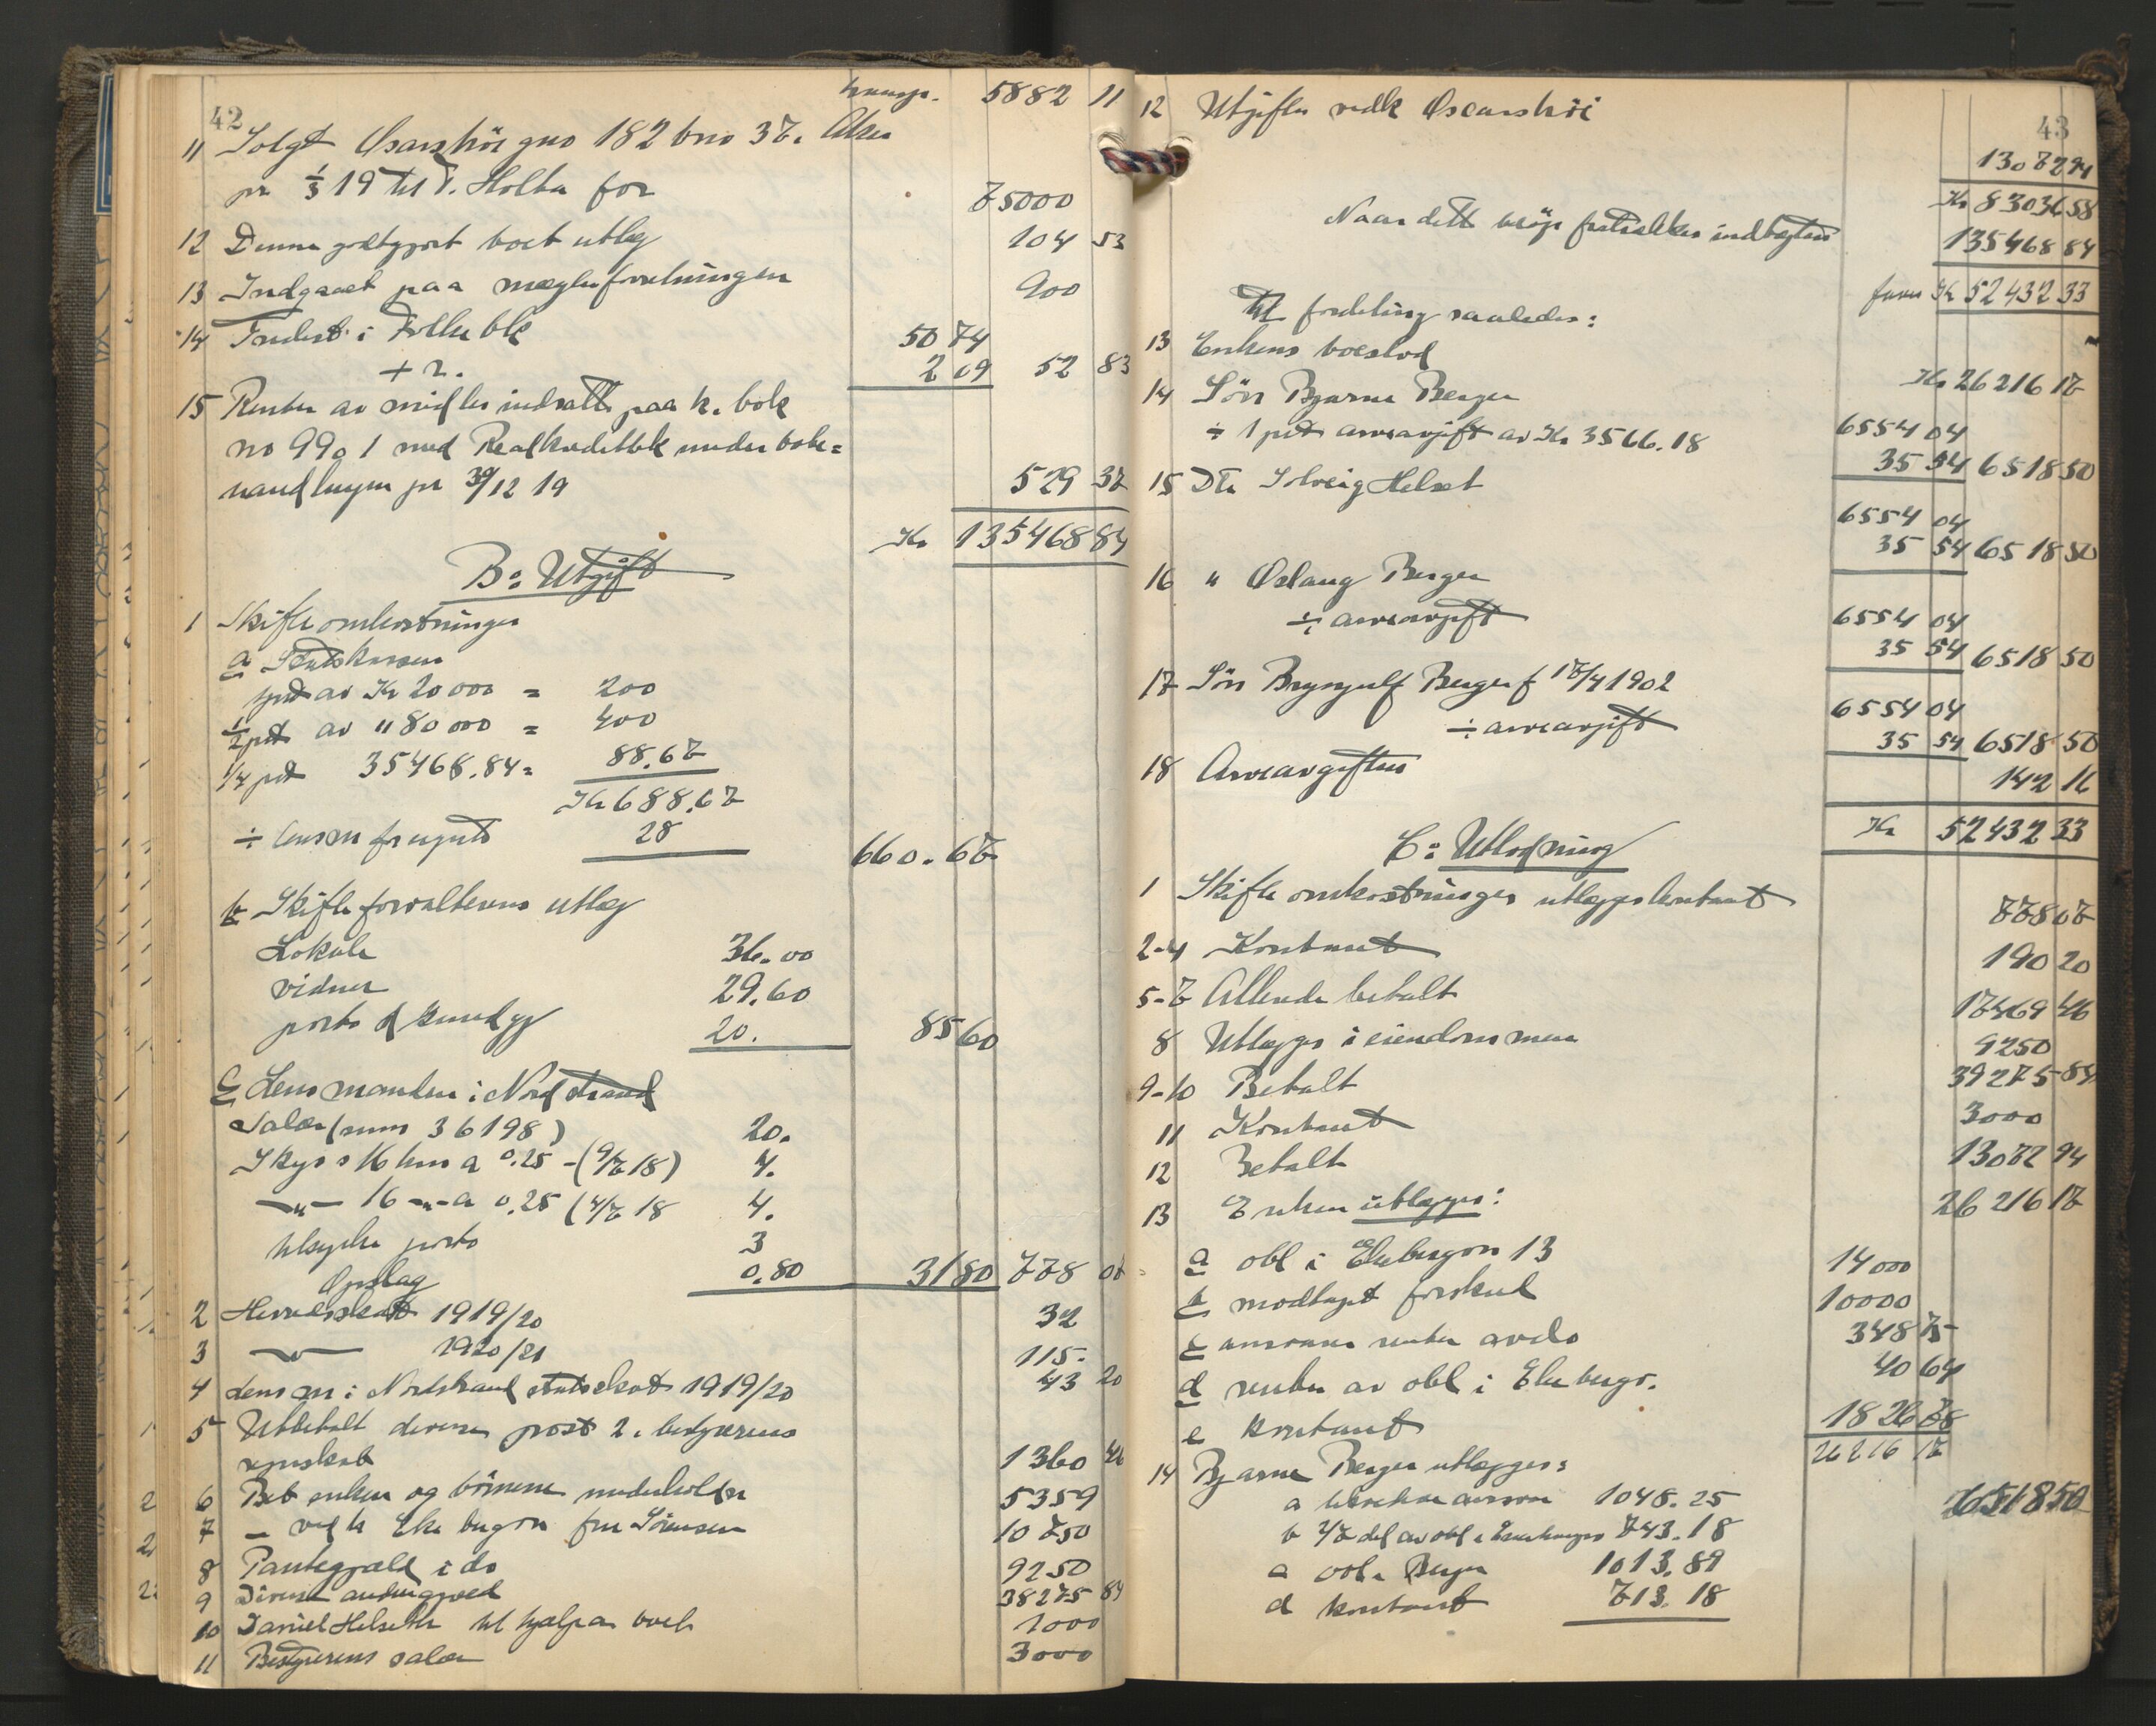 42
transp. 5882 11
11 Solgt Oscarshöi gno 182 bno 37. Aker
pr 1/3 19 til T. Holta for 75000
12 Denne godtgjort boet utlæg 104 53
13 Indgaaet paa mæglerforretningen 900
14 Indest. i Folkebk 50 74
+ r. 2 09 52 83
15 Renter av midler indsatt paa k. bok
no 9901 med Realkreditbk under bobe=
handlingen pr 30/12 19 529 37
Kr 135468 84
B: Utgift
1 Skifteomkostninger
a Statskassen
1 pct av Kr 20000 = 200
1/2 pct av " 80000 = 400
1/4 pct 35468.84 = 88.67
Kr 688.67
÷ lensm forrignet 28 660.67
b Skifteforvalterens utlæg
Lokale 36.00
vidner 29.60
porto &amp; kundgj 20. 85 60
c Lensmanden i Nordstrand
Salær (sum 36198) 20.
Skyss 16 km a 0.25 - (9/7 18) 4.
—"— 16 -"- a 0.25 (4/7 18 4.
tilsigelse porto 3
Opslag 0.80 31 80 778 07
2 Herredsskat 1919/20 32
3 —"— 1920/21 115.
4 Lensm i Nordstrand statsskat 1919/20 43 20
5 Utbetalt diverse post 2. bestyrerens
regnskab 1360 46
6 Bet enken og börnene underholdn 5359
7 — vedk Ekebergvn fru Sörensen 10750
8 Pantegjæld i do 9250
9 Diverse andengjæld 38275 84
10 Daniel Helseth til hjælp a boet 1000
11 Bestyrerens salær 3000
43
12 Utgifter vedk Oscarshöi 13072 94
Kr 83036 58
Naar dette beløp fratrækkes indtægten 135468 84
faaes Kr 52432 33
til fordeling saaledes:
13 Enkens boeslod Kr 26216 17
14 Sön Bjarne Berger 6554 04
÷ 1 pct arveavgift av Kr 3566.18 35 54 6518 50
15 Dtr Solveig Helset 6554 04
35 54 6518 50
16 " Aslaug Berger 6554 04
÷ arveavgift 35 54 6518 50
17 Sön Brynjulf Berger f 17/4 1902 6554 04
÷ arveavgift 35 54 6518 50
18 Arveavgiften 142 16
Kr 52432 33
C: Utlodning
1 Skifteomkostninger utlægges kontant 778 07
2-4 Kontant 190 20
5-7 Allerede betalt 17469 46
8 Utlægges i eiendommen 9250
9-10 Betalt 39275 84
11 Kontant 3000
12 Betalt 13072 94
13 Enken utlægges: 26216 17
a obl i Ekebergvn 13 14000
b modtaget forskud 10000
c ansvar renter avdo 348 75
d renter av obl i Ekebergv. 40 64
e kontant 1826 78
26216 17
14 Bjarne Berger utlægges: 6518 50
a 1048.25
b 2/7 del av obl i Ekebergv 743.18
c obl. Berger 1013.89
d kontant 713.18